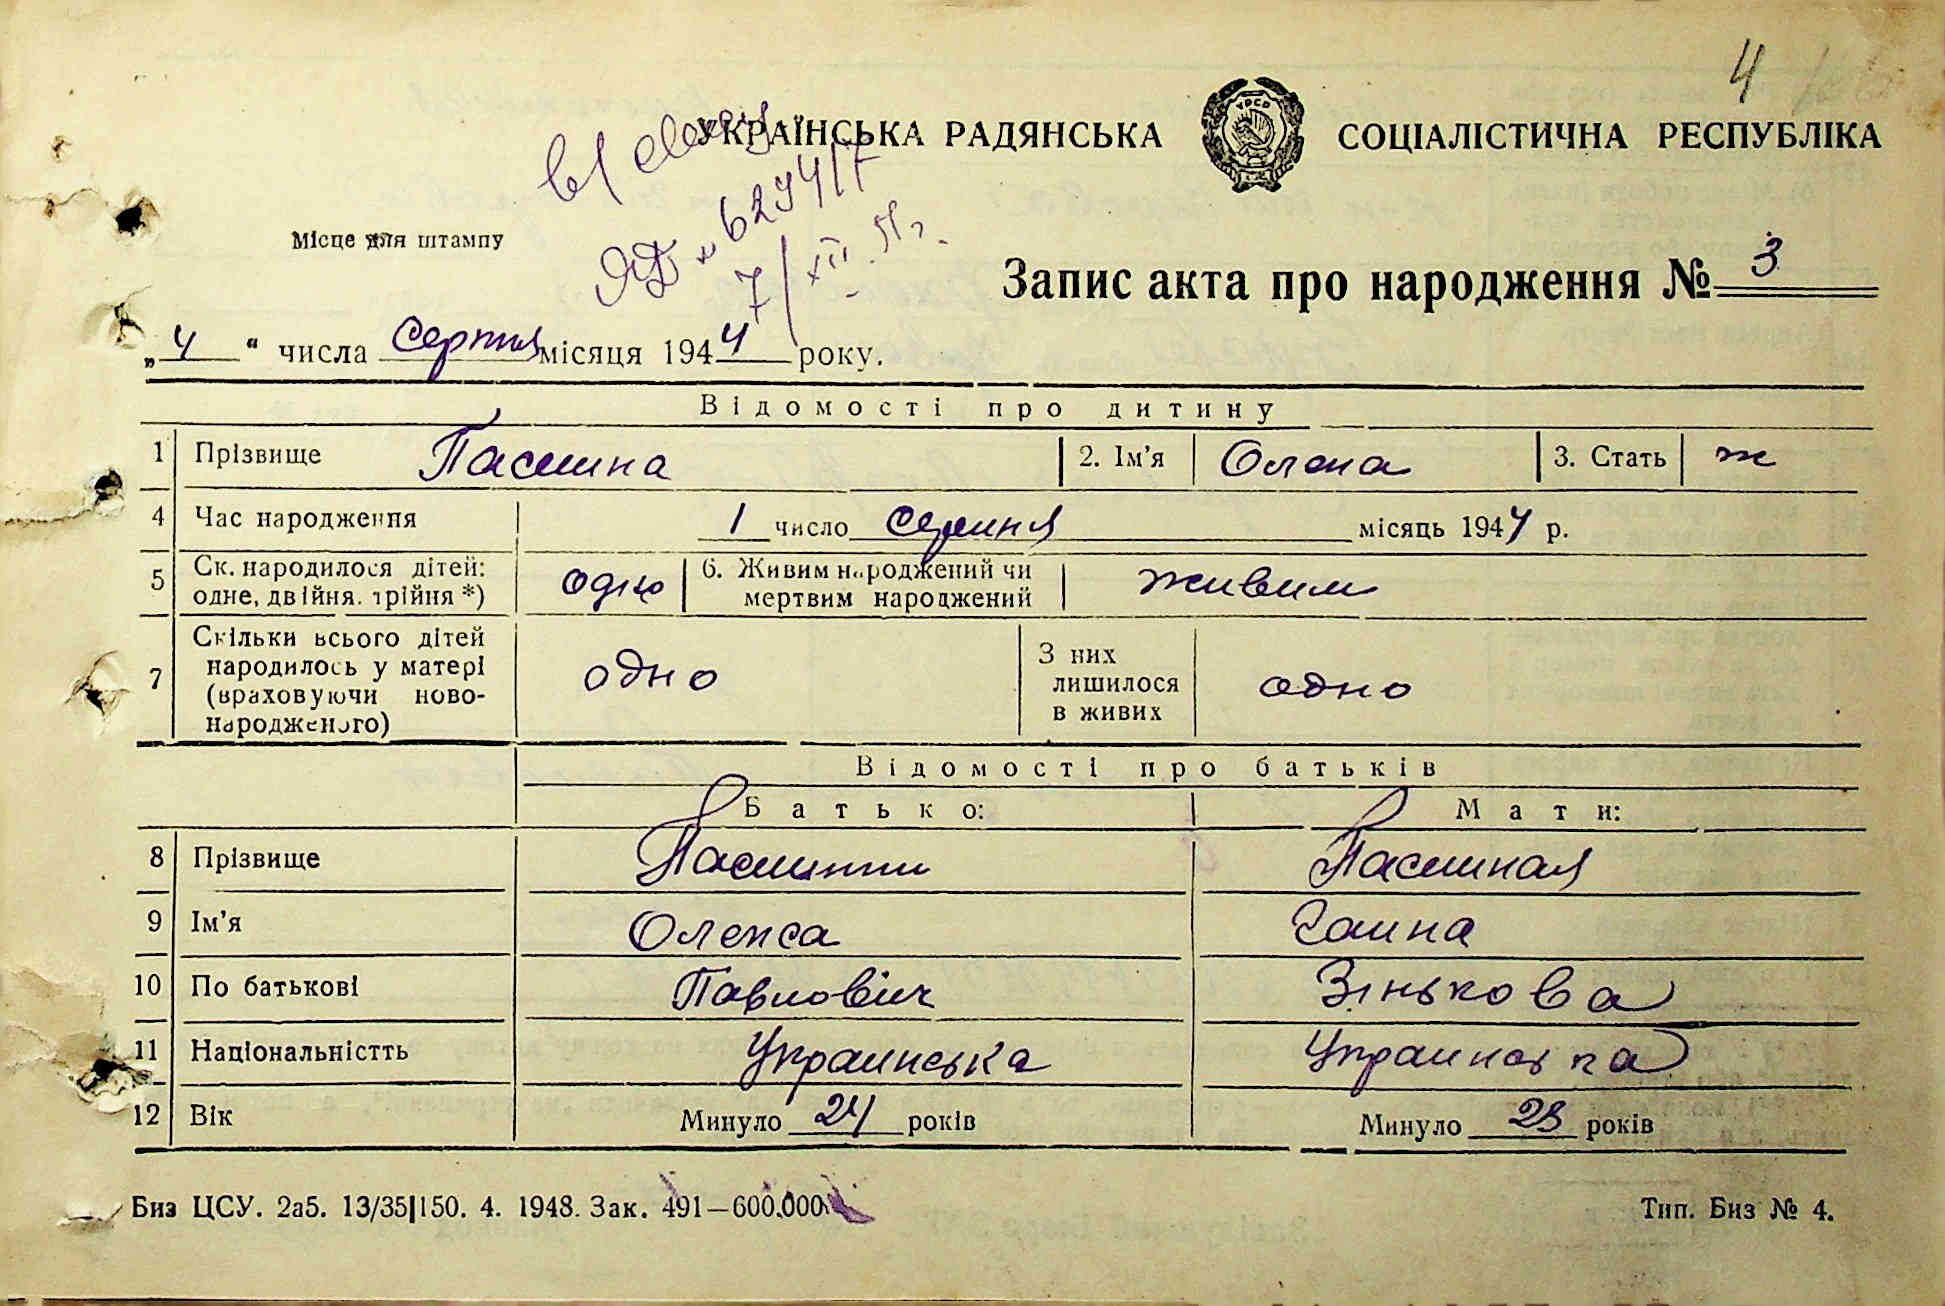 4
УКРАЇНСЬКА РАДЯНСЬКА СОЦІАЛІСТИЧНА РЕСПУБЛІКА
УРСР
Місце для штампу
ЯФ № 627417
7/XII. 51 г.
Запис акта про народження № 3
„4“ числа серпня місяця 1944 року.
Відомості про дитину
1 Прізвище Пасишна 2. Ім'я Олена 3. Стать ж
4 Час народження 1 число серпня місяць 1944 р.
5 Ск. народилося дітей: одне, двійня, трійня *) одно 6. Живим народжений чи мертвим народжений живим
7 Скільки всього дітей народилось у матері (враховуючи новонародженого) одно З них лишилося в живих одно
Відомості про батьків
Батько: Мати:
8 Прізвище Пасишни Пасишная
9 Ім'я Олекса Ганна
10 По батькові Павлович Зінькова
11 Національністть Украинська Украинська
12 Вік Минуло 24 років Минуло 23 років
Биз ЦСУ. 2а5. 13/35|150. 4. 1948. Зак. 491—600.000 Тип. Биз № 4.